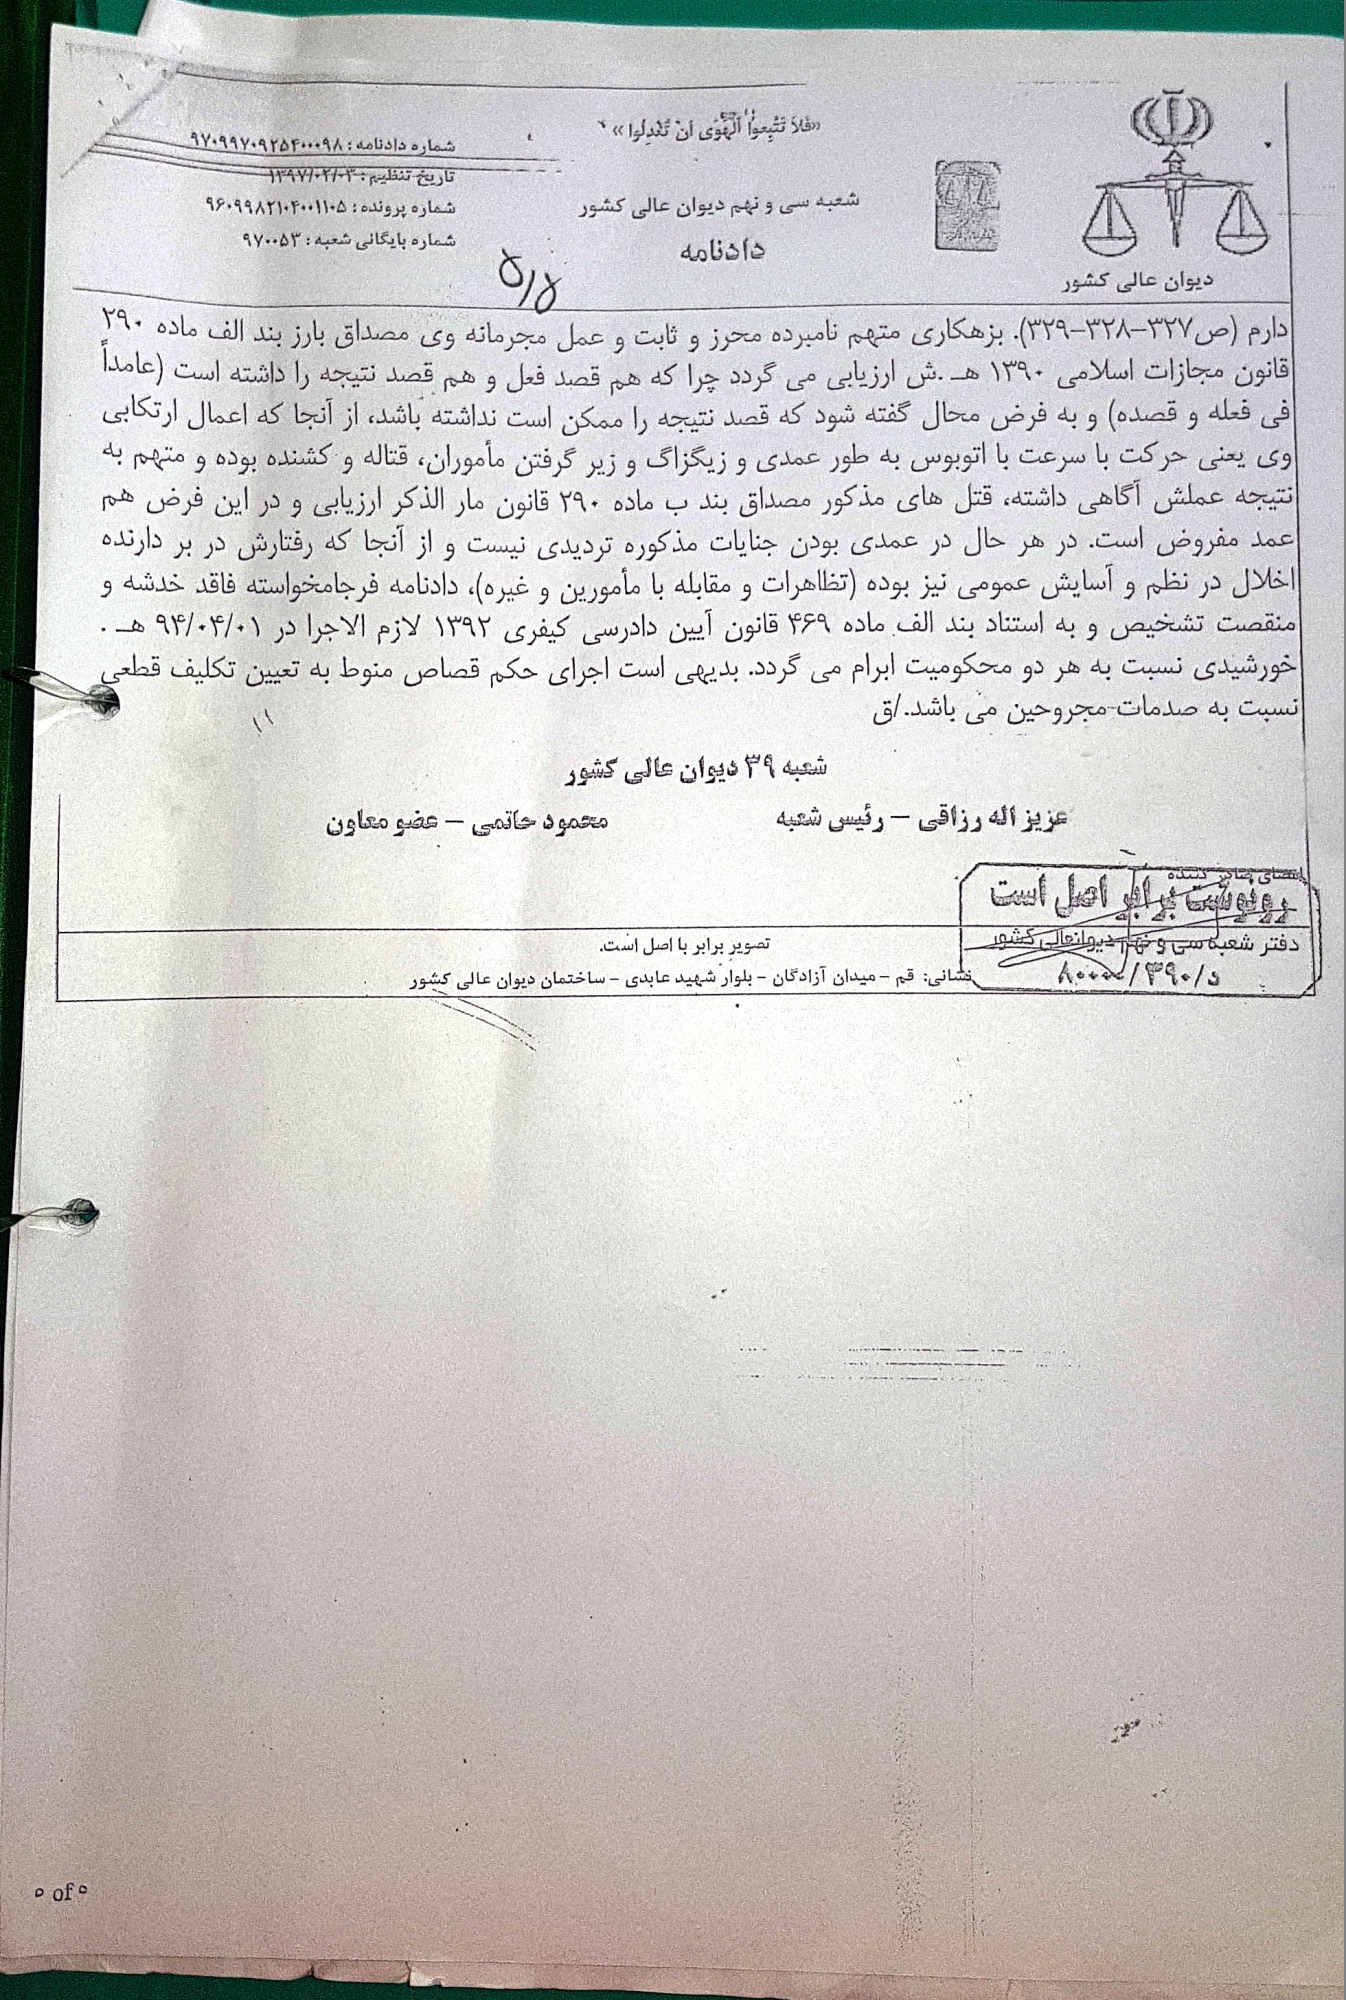 «فَلاَ تَتَّبِعوُا الْهَوَى اَنْ تَعْدِلُوا»
شماره دادنامه : ۹۷۰۹۹۷۰۹۲۵۴۰۰۰۹۸
تاریخ تنظیم : ۱۳۹۷/۰۲/۰۳
شماره پرونده : ۹۶۰۹۹۸۲۱۰۴۰۰۱۱۰۵
شماره بایگانی شعبه : ۹۷۰۰۵۳
شعبه سی و نهم دیوان عالی کشور
دادنامه
دیوان عالی کشور
۵/۵
دارم (ص۳۲۷-۳۲۸-۳۲۹). بزهکاری متهم نامبرده محرز و ثابت و عمل مجرمانه وی مصداق بارز بند الف ماده ۲۹۰
قانون مجازات اسلامی ۱۳۹۰ هـ .ش ارزیابی می گردد چرا که هم قصد فعل و هم قصد نتیجه را داشته است (عامداً
فی فعله و قصده) و به فرض محال گفته شود که قصد نتیجه را ممکن است نداشته باشد، از آنجا که اعمال ارتکابی
وی یعنی حرکت با سرعت با اتوبوس به طور عمدی و زیگزاگ و زیر گرفتن مأموران، قتاله و کشنده بوده و متهم به
نتیجه عملش آگاهی داشته، قتل های مذکور مصداق بند ب ماده ۲۹۰ قانون مار الذکر ارزیابی و در این فرض هم
عمد مفروض است. در هر حال در عمدی بودن جنایات مذکوره تردیدی نیست و از آنجا که رفتارش در بر دارنده
اخلال در نظم و آسایش عمومی نیز بوده (تظاهرات و مقابله با مأمورین و غیره)، دادنامه فرجامخواسته فاقد خدشه و
منقصت تشخیص و به استناد بند الف ماده ۴۶۹ قانون آیین دادرسی کیفری ۱۳۹۲ لازم الاجرا در ۹۴/۰۴/۰۱ هـ .
خورشیدی نسبت به هر دو محکومیت ابرام می گردد. بدیهی است اجرای حکم قصاص منوط به تعیین تکلیف قطعی
نسبت به صدمات مجروحین می باشد./ق
شعبه ۳۹ دیوان عالی کشور
عزیز اله رزاقی – رئیس شعبه محمود حاتمی – عضو معاون
امضای صادر کننده
رونوشت برابر اصل است
دفتر شعبه سی و نهم دیوانعالی کشور
تصویر برابر با اصل است.
د/۳۹۰/۸۰۰۰۰
نشانی: قم – میدان آزادگان – بلوار شهید عابدی – ساختمان دیوان عالی کشور
۵ of ۵